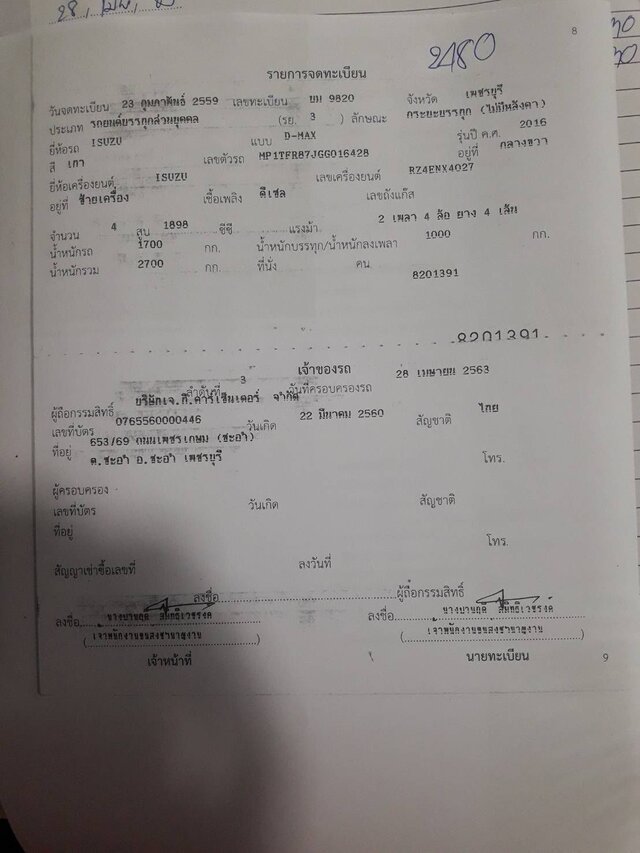 8
2480
รายการจดทะเบียน
วันจดทะเบียน 23 กุมภาพันธ์ 2559 เลขทะเบียน ยม 9820 จังหวัด เพชรบุรี
ประเภท รถยนต์บรรทุกส่วนบุคคล (รย. 3 ) ลักษณะ กระบะบรรทุก (ไม่มีหลังคา)
ยี่ห้อรถ ISUZU แบบ D-MAX รุ่นปี ค.ศ. 2016
สี เทา เลขตัวรถ MP1TFR87JGG016428 อยู่ที่ กลางขวา
ยี่ห้อเครื่องยนต์ ISUZU เลขเครื่องยนต์ RZ4ENX4027
อยู่ที่ ซ้ายเครื่อง เชื้อเพลิง ดีเซล เลขถังแก๊ส
จำนวน 4 สูบ 1898 ซีซี แรงม้า 2 เพลา 4 ล้อ ยาง 4 เส้น
น้ำหนักรถ 1700 กก. น้ำหนักบรรทุก/น้ำหนักลงเพลา 1000 กก.
น้ำหนักรวม 2700 กก. ที่นั่ง คน
8201391
8201391
เจ้าของรถ
ลำดับที่ 3 วันที่ครอบครองรถ 28 เมษายน 2563
ผู้ถือกรรมสิทธิ์ บริษัทเจ.กี.คาร์เซ็นเตอร์ จำกัด
เลขที่บัตร 0765560000446 วันเกิด 22 มีนาคม 2560 สัญชาติ ไทย
ที่อยู่ 653/69 ถนนเพชรเกษม (ชะอำ)
ต.ชะอำ อ.ชะอำ เพชรบุรี โทร.
ผู้ครอบครอง
เลขที่บัตร วันเกิด สัญชาติ
ที่อยู่
โทร.
สัญญาเช่าซื้อเลขที่ ลงวันที่
ลงชื่อ ผู้ถือกรรมสิทธิ์
ลงชื่อ ลงชื่อ
(เจ้าพนักงานขนส่งชำนาญงาน) (เจ้าพนักงานขนส่งชำนาญงาน)
เจ้าหน้าที่ นายทะเบียน
9